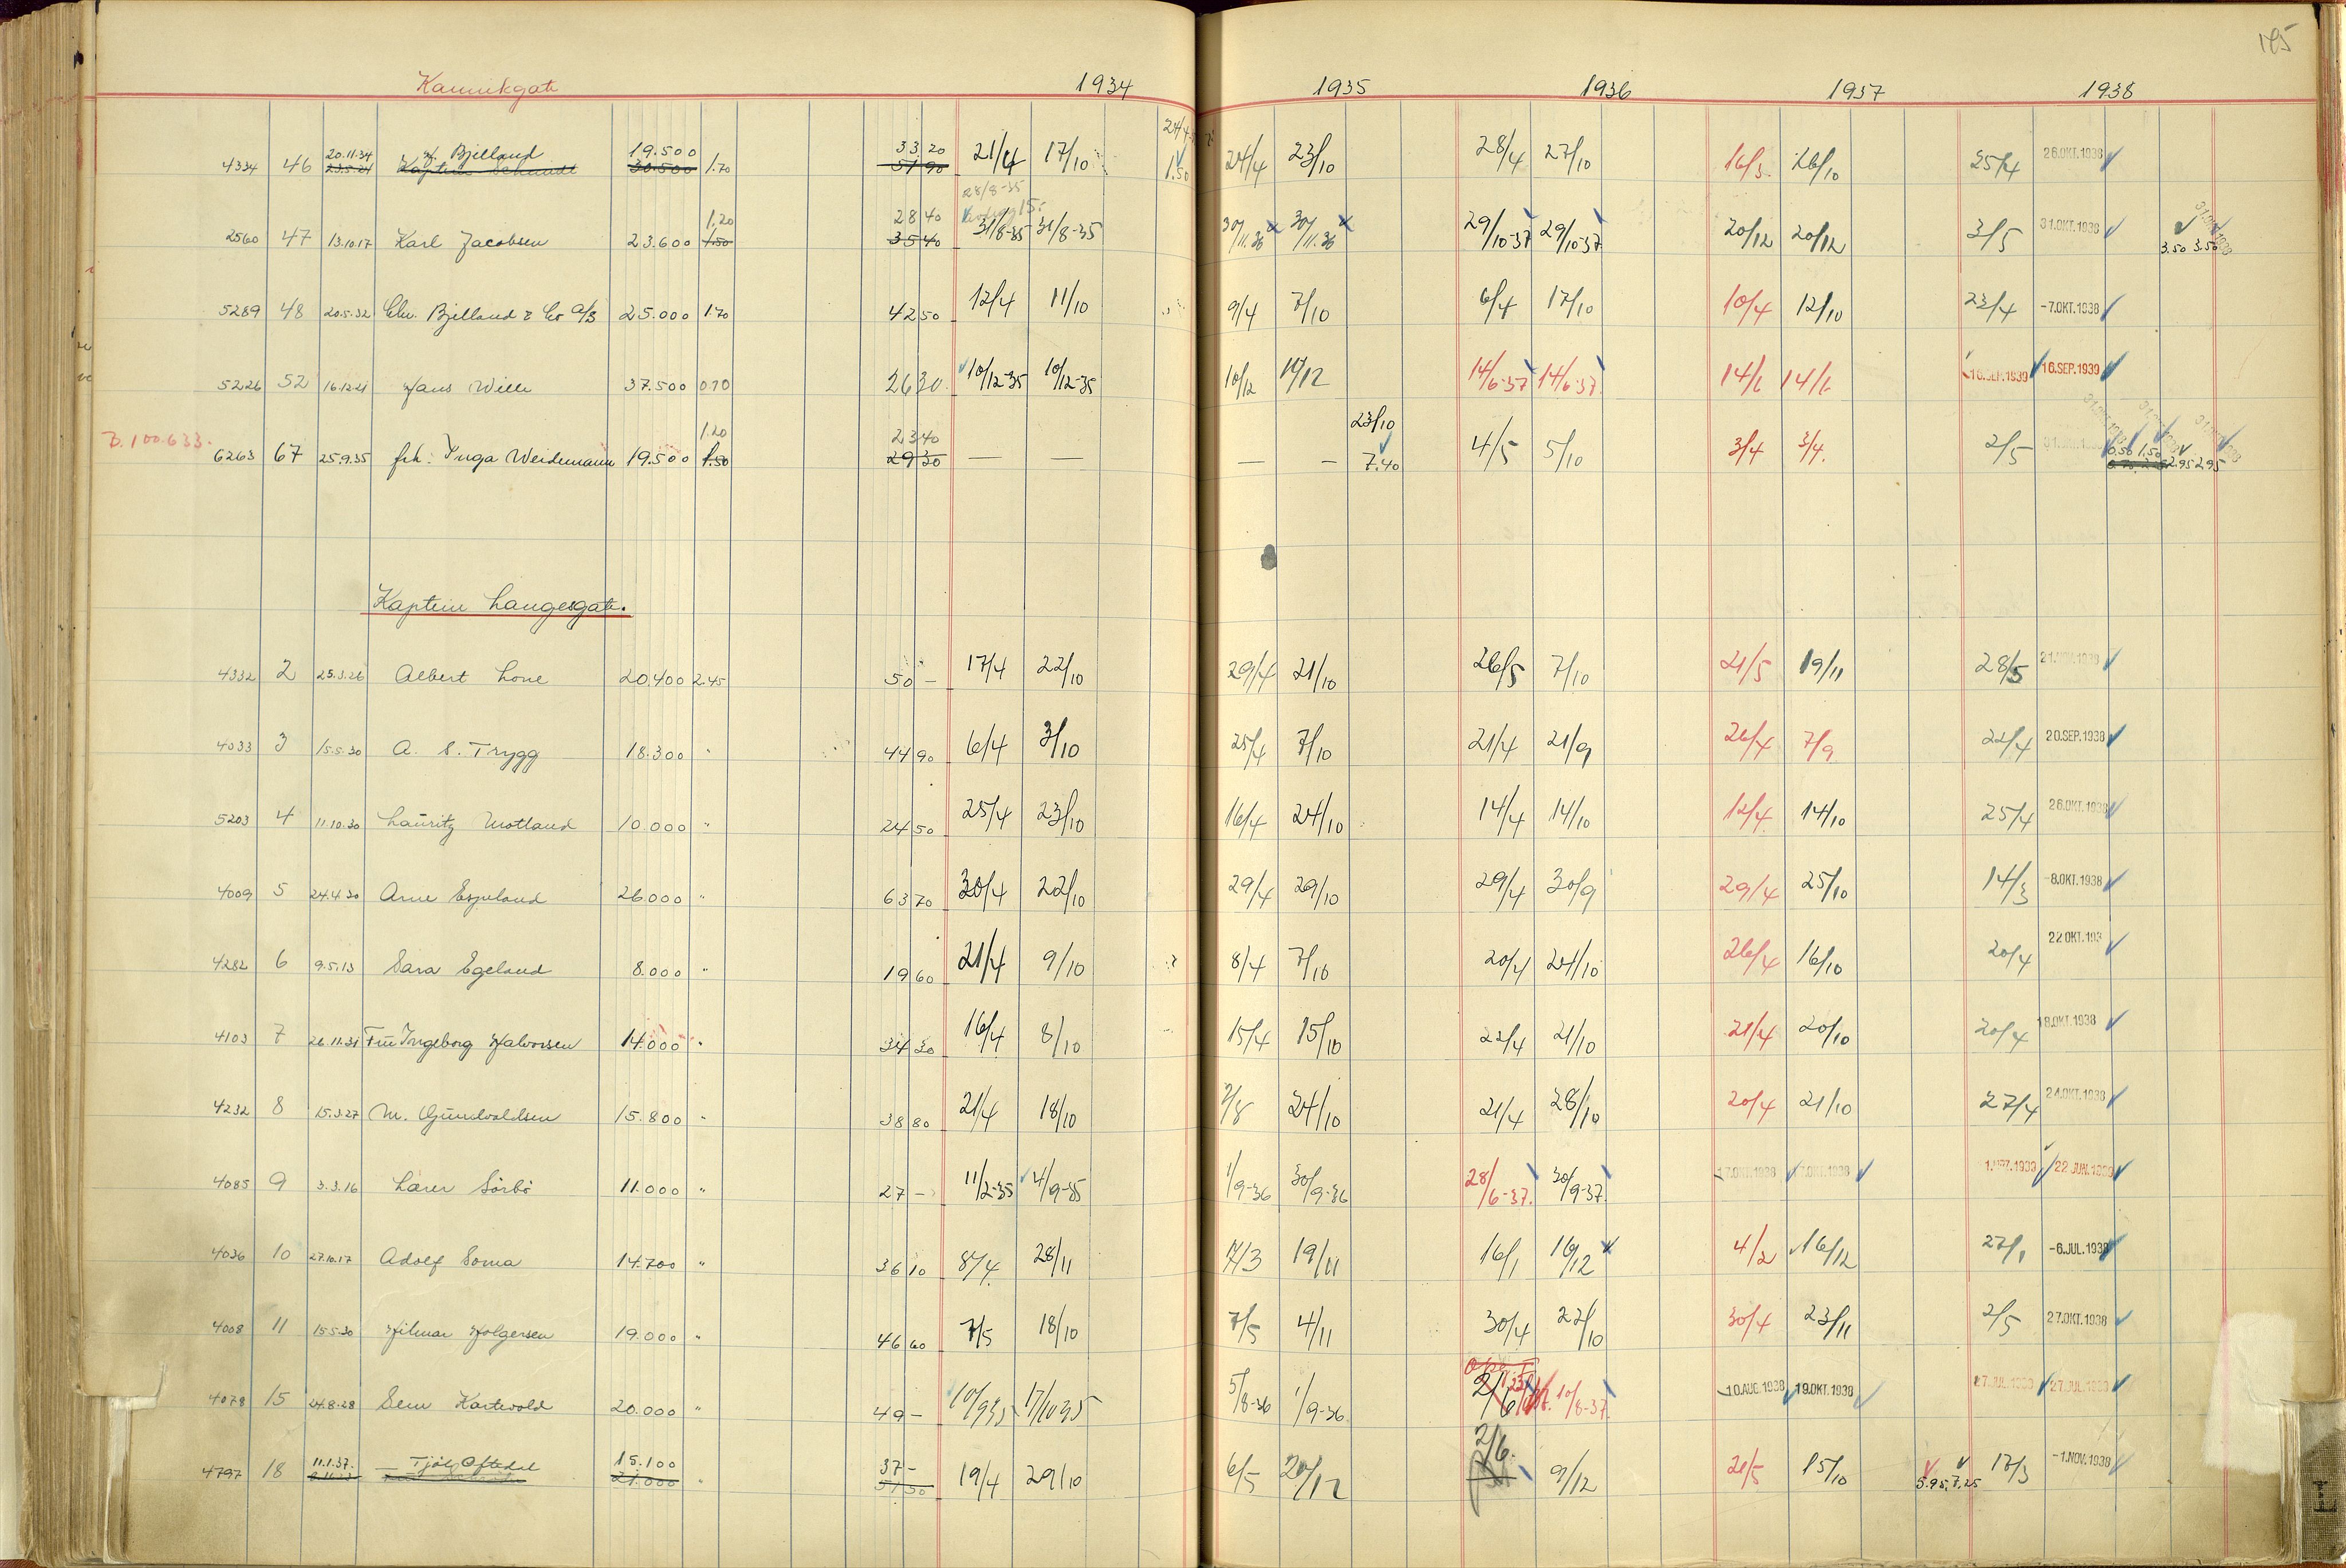 185
Kannikgate 1934 1935 1936 1937 1938
4334 46 20.11.34 23.5.24 H. Bjelland Kaptein Schmidt 19.500 30.500 1.70 33 20 51 90 21/4 17/10 24/4 1.50 24/4 23/10 28/4 27/10 16/3 26/10 25/4 26.OKT.1938
28/8-35
2560 47 13.10.17 Karl Jacobsen 23.600 1,20 1.50 28 40 35 40 31/8-35 31/8-35 30/11.36 30/11.36 29/10-37 29/10-37 20/12 20/12 3/5 31.OKT.1938 3.50 3.50
5289 48 20.5.32 Chr. Bjelland & Co A/S 25.000 1.70 42 50 12/4 11/10 9/4 7/10 6/4 17/10 10/4 12/10 23/4 -7.OKT.1938
5226 52 16.12.21 Hans Wille 37.500 0.70 26 30 10/12-35 10/12-35 10/12 10/12 14/6-37 14/6-37 14/6 14/6 16.SEP.1939 16.SEP.1939
D. 100.633.
6263 67 25.9.35 frk. Inga Weidemann 19.500 1.20 1.50 23 40 29 30 — — — — 23/10 7.40 4/5 5/10 3/4 3/4. 2/5 0.50 1.50 2.95 2.95
Kaptein Langesgate.
4332 2 25.3.26 Albert Lone 20.400 2.45 50 – 17/4 22/10 29/4 21/10 26/5 7/10 21/5 19/11 28/5 21.NOV.1938
4033 3 15.5.30 A. S. Trygg 18.300 " 44 90 6/4 3/10 25/4 7/10 21/4 21/9 26/4 7/9 22/4 20.SEP.1938
5203 4 11.10.30 Lauritz Motland 10.000 " 24 50 25/4 23/10 16/4 24/10 14/4 14/10 12/4 14/10 25/4 26.OKT.1938
4009 5 24.4.30 Arne Espeland 26.000 " 63 70 30/4 22/10 29/4 29/10 29/4 30/9 29/4 25/10 14/3 -8.OKT.1938
4282 6 9.5.13 Sara Egeland 8.000 " 19 60 21/4 9/10 8/4 7/10 20/4 24/10 26/4 16/10 20/4 22 OKT.193
4103 7 26.11.31 Fru Ingeborg Halvorsen 14.000 " 34 30 16/4 8/10 15/4 15/10 22/4 21/10 21/4 20/10 20/4 18.OKT.1938
4232 8 15.3.27 M. Gundvaldsen 15.800 " 38 80 21/4 18/10 2/8 24/10 21/4 28/10 20/4 21/10 27/4 24.OKT.1938
4085 9 3.3.16 Lærer Sörbö 11.000 " 27 – 11/2-35 4/9-35 1/9-36 30/9-36 28/6-37. 30/9-37. 17.OKT.1938 17.OKT.1938 22 JUN.1939
4036 10 27.10.17 Adolf Soma 14.700 " 36 10 8/4 28/11 14/3 19/11 16/1 16/12 4/2 16/12 27/1 -6.JUL.1938
4008 11 15.5.30 Hilmar Holgersen 19.000 " 46 60 7/5 18/10 7/5 4/11 30/4 22/10 30/4 23/11 2/5 27.OKT.1938
4078 15 24.8.28 Sem Kartevold 20.000 " 49 – 10/9 35 17/10 35 5/8-36 1/9-36 2/6 10/8-37. 10.AUG.1938 19.OKT.1938 27.JUL.1939 27.JUL.1939
4797 18 11.1.37. Tjöl. Oftedal 15.100 21.000 " 37 – 51 50 19/4 29/10 6/5 20/12 2/6. 9/12 21/5 15/10 5.95 7.25 17/3 -1.NOV.1938